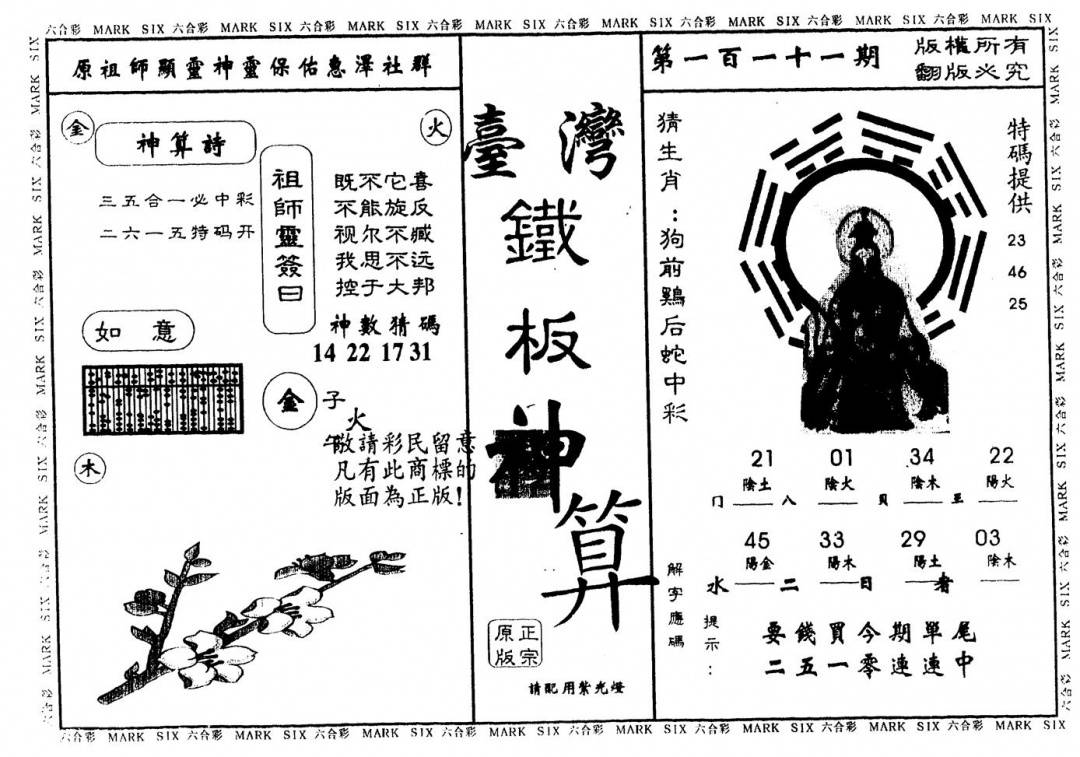 六合彩 MARK SIX 六合彩 MARK SIX 六合彩 MARK SIX 六合彩 MARK SIX 六合彩 MARK SIX 六合彩 MARK SIX 六合彩 MARK SIX 六合彩 MARK SIX
原祖師顯靈神靈保佑惠澤社群
金
火
神算詩
三五合一必中彩
二六一五特码开
祖師靈簽曰
既不它喜
不能旋反
视尔不臧
我思不远
控于大邦
神數猜碼
14 22 17 31
如意
金
子
火
午
木
敬請彩民留意
凡有此商標的
版面為正版!
臺灣
鐵
板
神
算
正宗
原版
請配用紫光燈
第一百一十一期
版權所有
翻版必究
猜生肖:狗前鷄后蛇中彩
特碼提供
23
46
25
21 01 34 22
陰土 陰火 陰木 陽火
门 八 貝 至
45 33 29 03
陽金 陽木 陽土 陰木
水 二 日 者
解字應碼
提示:
要錢買今期單尾
二五一零連連中
六合彩 MARK SIX 六合彩 MARK SIX 六合彩 MARK SIX 六合彩 MARK SIX 六合彩 MARK SIX 六合彩 MARK SIX 六合彩 MARK SIX 六合彩 MARK SIX